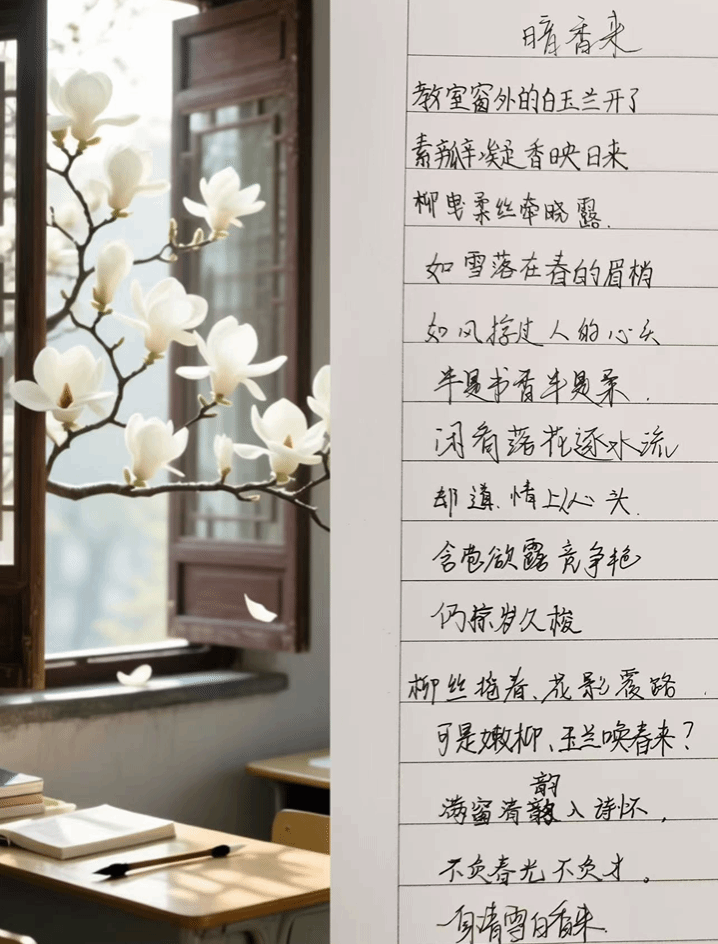 暗香来
教室窗外的白玉兰开了
素瓣凝香映日来
柳曳柔丝牵晓露.
如雪落在春的眉梢
如风掠过人的心头
半是书香半是柔.
闲看落花逐水流
却道.情上人心头.
含苞欲露竞争艳
仍掠岁久梭
柳丝拖春、花影覆路.
可是嫩柳、玉兰唤春来?
满窗清韵入诗怀,
不负春光不负才。
一身清雪白香来.